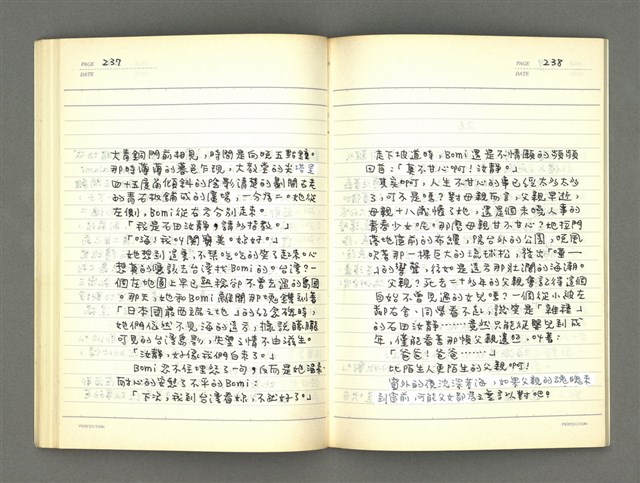 PAGE 237
DATE
大青銅門前相見，時間是向晚五點鐘。
那時薄薄的暮色乍現，大教堂的尖塔呈
四十五度角傾斜的陰影清楚的劃開古老
的青石板鋪成的廣場，一分為二。她從
左側，Bomi從右方分別走來。
「我是石田汝靜，請多指教。」
「嗨，我叫關寶美。妳好。」
她想到這裏，不禁吃吃的笑了起來。心
想真的應該去台灣找Bomi的。台灣？一
個在地圖上早已熟稔卻不曾去過的島國
。那天，她和Bomi離開那塊鐫刻著
「日本國最西端之地」的紀念碑時，
她們依然不見海的遠方，據說朦朧
可見的台灣島影，失望之情不由滋生。
「汝靜，好像我們白來了。」
Bomi忍不住埋怨了一句，反而是她
「下次，我到台灣看妳，不就好了。」
PERFECTION
PAGE 238
DATE
走下坡道時，Bomi還是不情願的頻頻
回首：「真不甘心啊！汝靜。」
其實啊，人生不甘心的事已經太多太多
了，可不是嗎？對母親而言，父親早逝，
母親十八歲懷了她，還是個未曉人事的
青春少女呢。那麼母親甘不甘心？她拉開
落地窗前的布縵，陽台外的公園，晚風
吹著那一棵巨大的琉球松，發出「嘩──
」的聲響，彷如是遠方那壯闊的海潮。
父親？死去二十多年的父親會記得這個
自始不曾見過的女兒嗎？一個從小被左
鄰右舍、同學看不起，說笑是「雜種」
的石田汝靜⋯⋯竟然只能從嬰兒到成
年，僅能看著那幀父親遺照，叫著：
「爸爸！爸爸⋯⋯⋯」
比陌生人更陌生的父親啊！
窗外的夜沈深蒼茫，如果父親的魂魄來
到窗前，可能父女都
PERFECTION